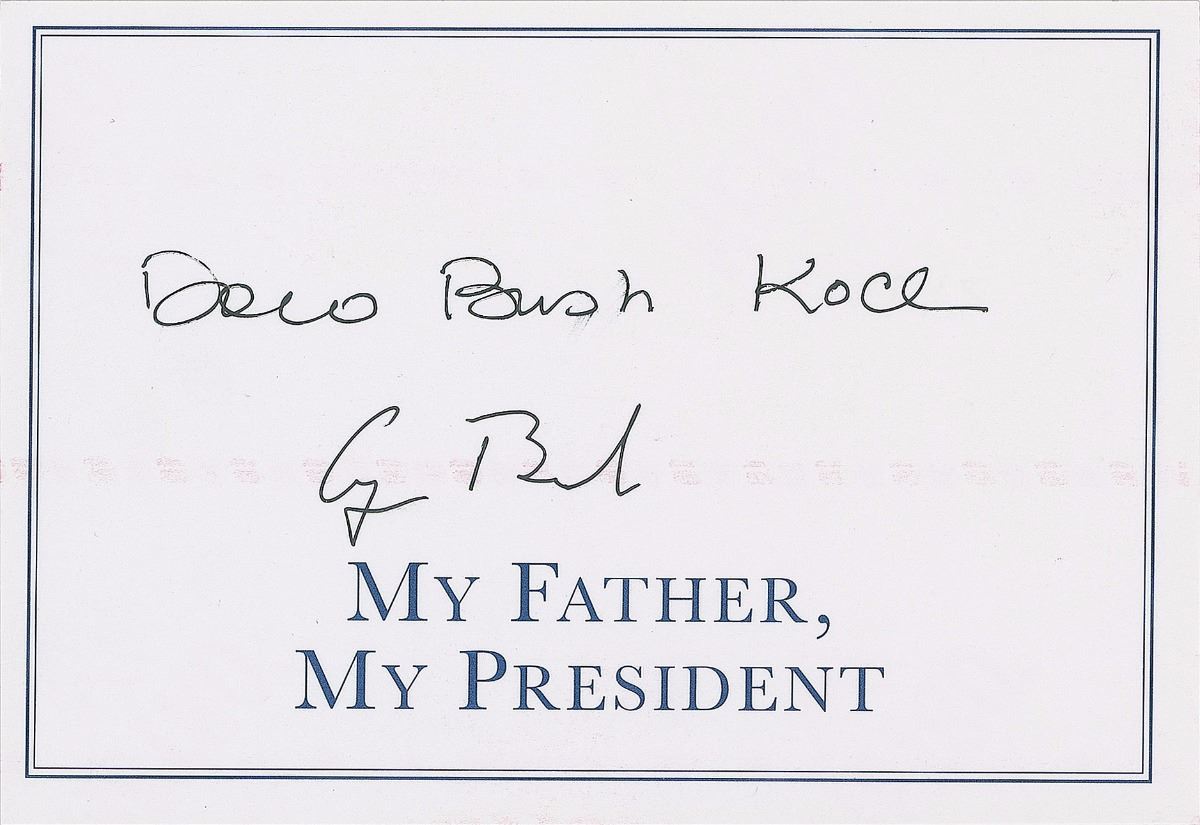 Doro Bush Koch
G Bush
MY FATHER,
MY PRESIDENT